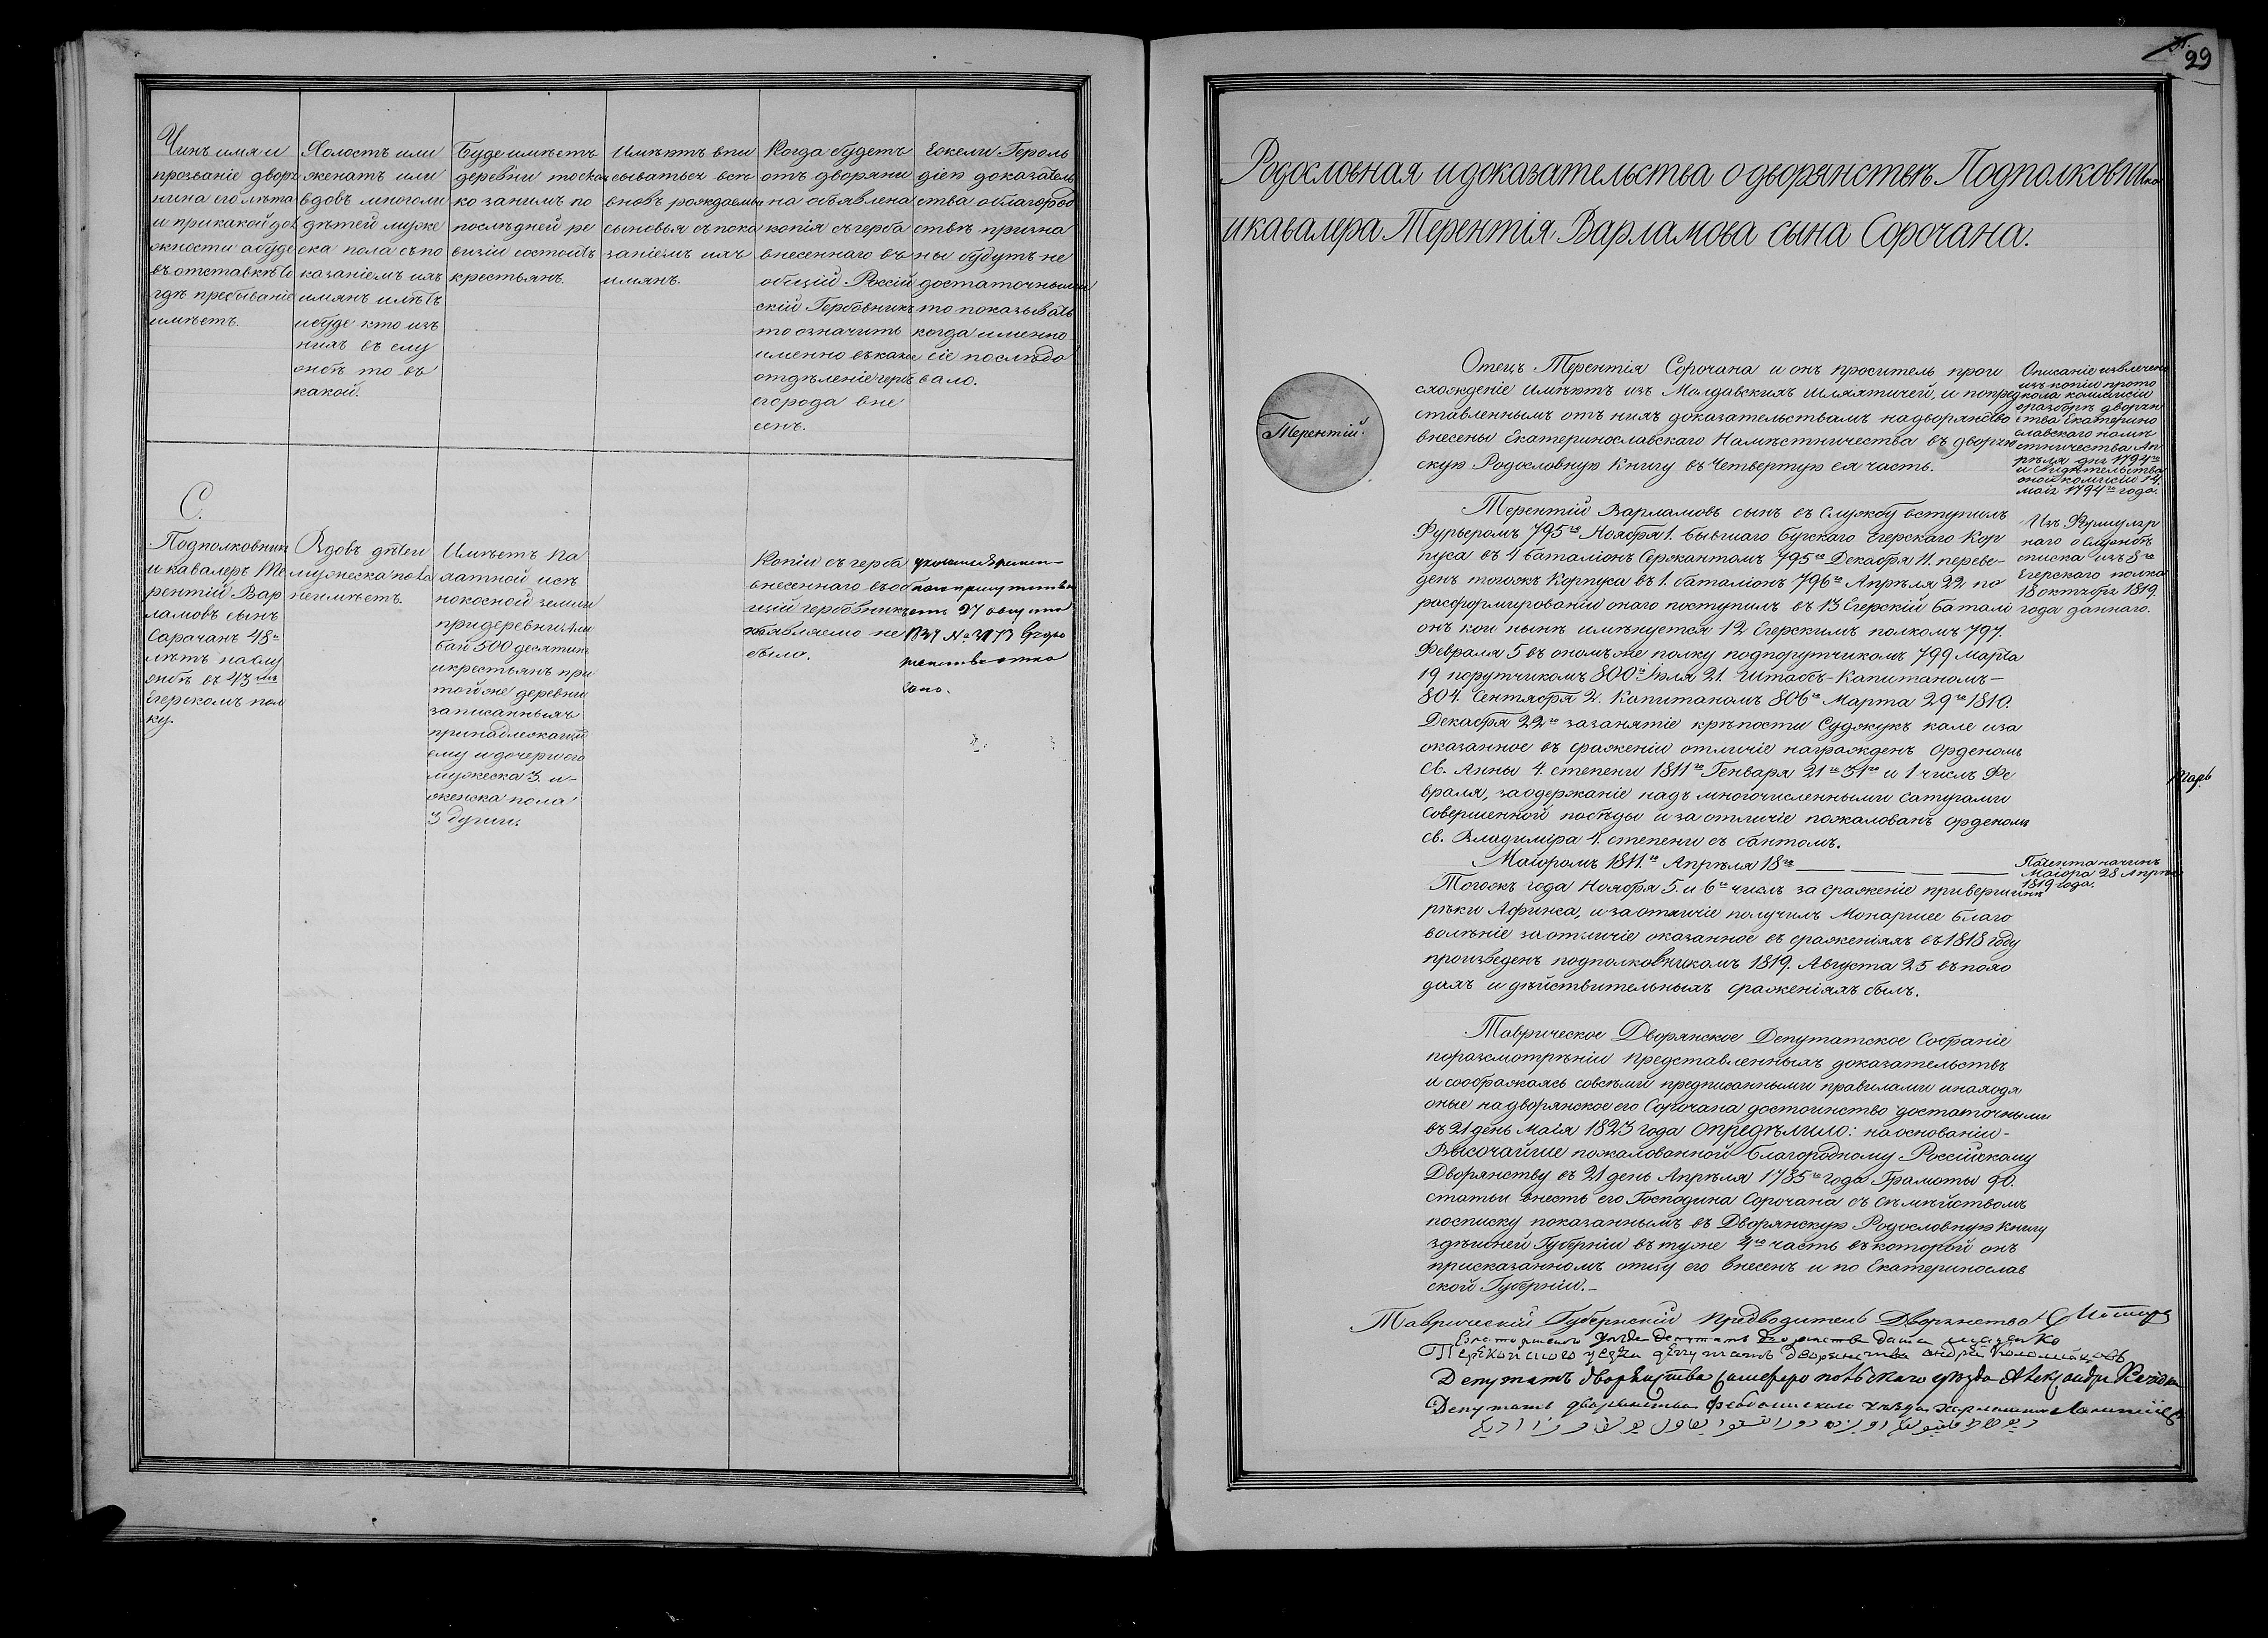 Чинъ имя и
прозваніе дворя
нина его лѣта
и прикакой дол
жности абуде
въ отставкѣ то
гдѣ пребываніе
имѣетъ.
Холостъ или
женатъ или
вдовъ многоли
дѣтей муже
ска пола съпо
казаніемъ ихъ
имянъ илѣтъ
ибуде кто изъ
нихъ въ слу
жбѣ то въ
какой.
Буде имѣетъ
деревни тоскол
ко занимъ по
послѣдней ре
визіи состоитъ
крестьянъ.
Имѣютъ впи
сыватьсѧ всѣ
вновь рождаемы
сыновья съпока
заніемъ ихъ
имянъ.
Когда будетъ
отъ дворяни
на объявлена
копія съгерба
внесеннаго въ
общій Россій
скій Гербовникъ
то означить
именно въкакое
отдѣленіе гербъ
егорода вне
сенъ.
Ежели Героль
діею доказатель
ства облагород
ствѣ призна
ны будутъ не
достаточными
то показывать
когда именно
сіе послѣдо
вало.
С.
Подполковникъ
и кавалеръ Те
рентій Вар
ламовъ сынъ
Сарачанъ 48
лѣтъ наслу
жбѣ въ 43 мъ
Егерскомъ пол
ку.
Вдовъ дѣтей
мужеска пола
неимѣетъ.
Имѣетъ па
хатной исѣ
нокосной земли
придеревни
бай 500 десятинъ
икрестьянъ при
тойже деревни
записанныхъ
принадлежащихъ
ему идочери его
мужеска 3. и-
женска пола
3 души.
Копіи съ герба
внесеннаго въоб
щій гербовникъ
объявляемо не
было.
27 августа
было
29
Родословная идоказательства о дворянствѣ Подполковника
икавалера Терентія Варламова сына Сорочана.
Терентій.
Отецъ Терентія Сорочана и онъ проситель прои
схожденіе имѣютъ изъ Молдавскихъ шляхтичей, и попред
ставленнымъ отъ нихъ доказательствамъ надворянство
внесены Екатеринославскаго Намѣстничества въ дворян
скую Родословную Книгу въ Четвертую ея часть.
Описаніе извлечено
изъ копіи прото
кола коммисіи
оразборѣ дворян
ства Екатерино
славскаго намѣ
стничества Ап
рѣля дня 1794го
и свидѣтельства
оной комисіи 14.
маія 1794го года.
Терентій Варламовъ сынъ въ Службу вступилъ
Фурьеромъ 795го Ноября 1. бывшаго Бугскаго Егерскаго Кор
пуса въ 4 баталіонъ Сержантомъ 795го Декабря 11. переве-
денъ тогожъ Корпуса въ 1. баталіонъ 796го Апрѣля 22. по
расформированіи онаго поступилъ въ 13 Егерскій батали
онъ кои нынѣ имянуется 12 Егерскимъ полкомъ 797.
Февраля 5 въ ономъже полку подпорутчикомъ 799 Марта
19 порутчикомъ 800го Іюля 21. Штабсъ-Капитаномъ-
804. Сентября 2. Капитаномъ 806го Марта 29го 1810.
Декабря 22го зазанятіе крѣпости Суджукъ кале иза
оказанное въ сраженіи отличіе награжденъ орденомъ
Св. Анны 4. степени 1811го Генваря 21го 31го и 1 числъ Фе
враля, заодержаніе надъ многочисленными Сатугами
Совершенной побѣды и за отличіе пожалованъ орденомъ
Св. Владиміра 4. степени съ бантомъ.
Изъ Формуляр
наго о Службѣ
списка изъ 8го
Егерскаго полка
18 октября 1819.
года даннаго.
Маіоромъ 1811.го Апрѣля 18го
Патента начинъ
Маіора 28 Апрѣля
1819 года.
Тогожъ года Ноября 5. и 6го числъ за сраженіе привершинѣ
рѣки Афипса, и за отличіе получилъ Монаршее благо
волѣніе заотличіе оказанное въ сраженіяхъ въ 1818 году
произведенъ подполковникомъ 1819. Августа 25 въ похо
дахъ и дѣйствительныхъ сраженіяхъ былъ.
Таврическое Дворянское Депутатское Собраніе
поразсмотрѣніи представленныхъ доказательствъ
и соображаясь совсѣми предписанными правилами инаходя
оные надворянское его Сорочана достоинство достаточными
въ 21 день Маія 1823 года опредѣлило: наоснованіи-
Высочайше пожалованной благородному Россійскому
Дворянству въ 21 день Апрѣля 1785го года Грамоты 90.
статьи внесть его Господина Сорочана съ сѣмѣйствомъ
посписку показаннымъ въ Дворянскую Родословную Книгу
здѣшней Губерніи въ туже 4ю часть въкоторой онъ
присказанномъ отцу его внесенъ и по Екатеринослав
ской Губерніи.-
Таврическій Губернскій Предводитель Дворянства
Депутатъ дворянства